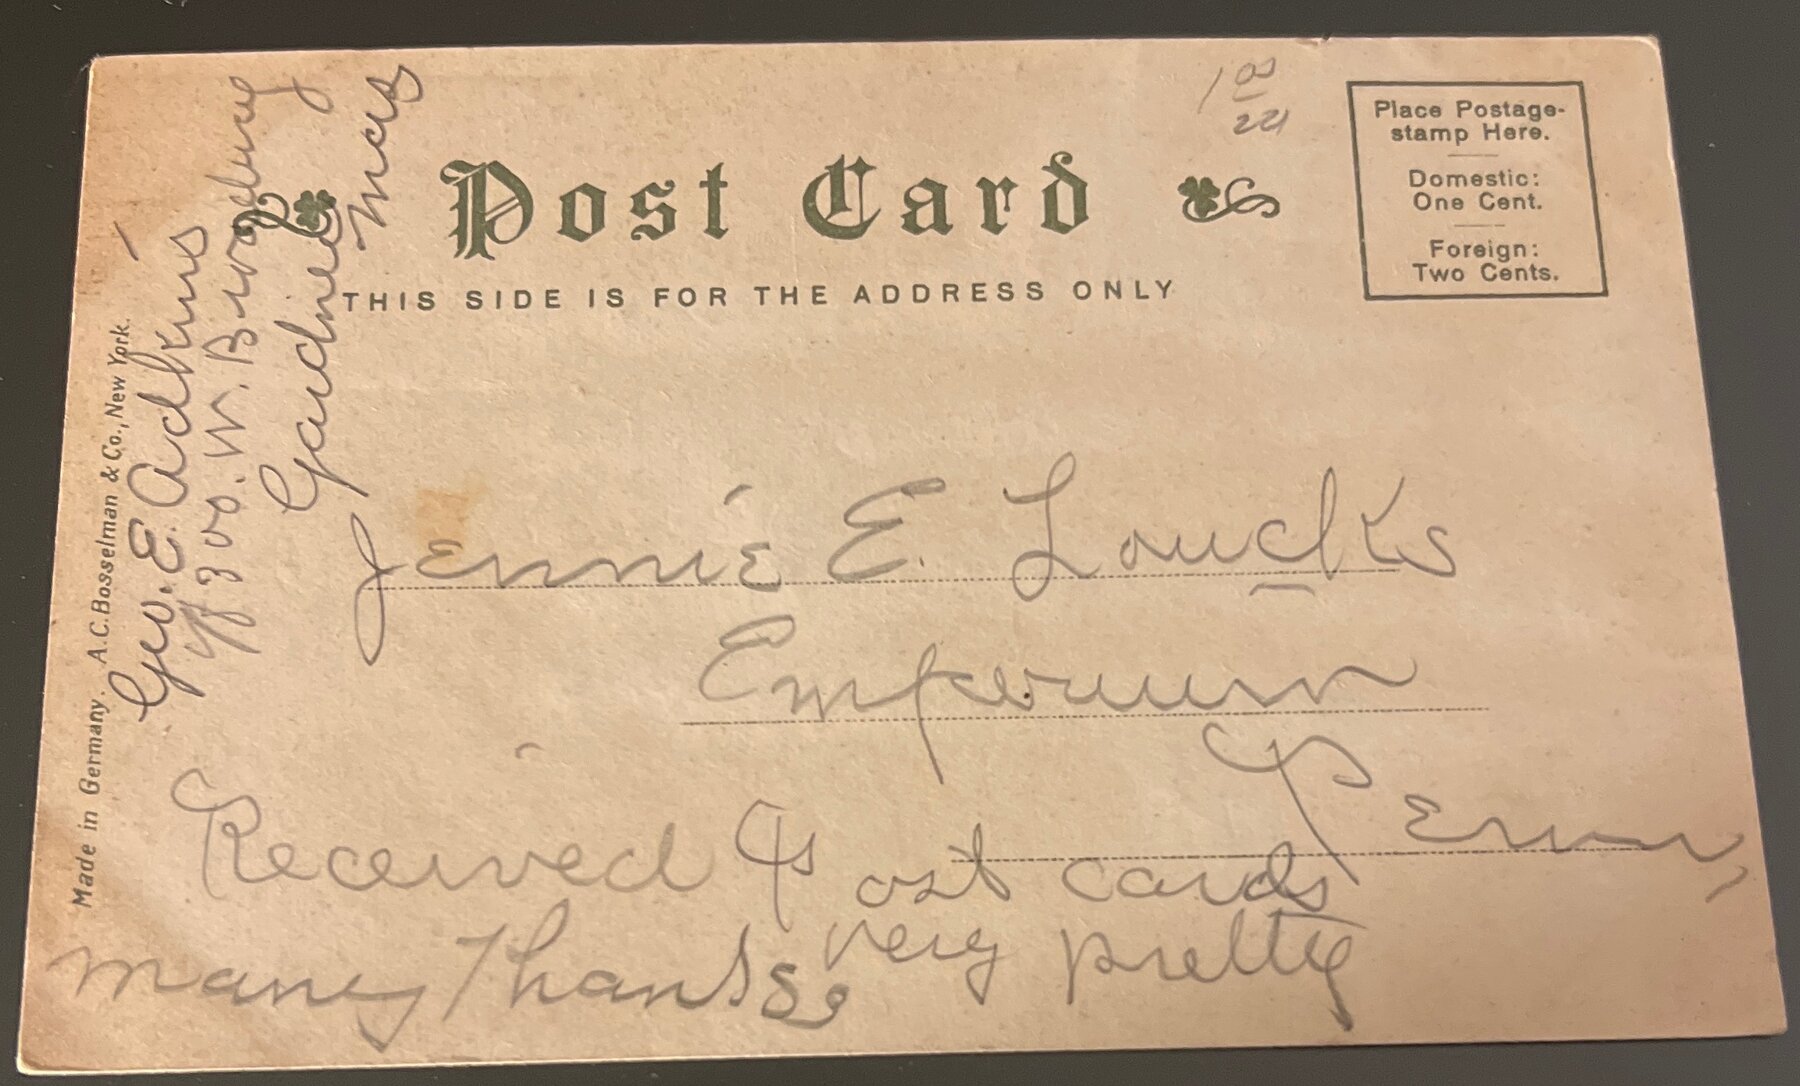 1 00
Post Card
THIS SIDE IS FOR THE ADDRESS ONLY
Place Postage-
stamp Here.
Domestic:
One Cent.
Foreign:
Two Cents.
Made in Germany. A.C. Bosselman & Co., New York.
Geo. E. Adkins
W. Broadway
Gardner
Mas
Jennie E. Loucks
Emporium
Penn,
Received Post cards
many Thanks. very pretty